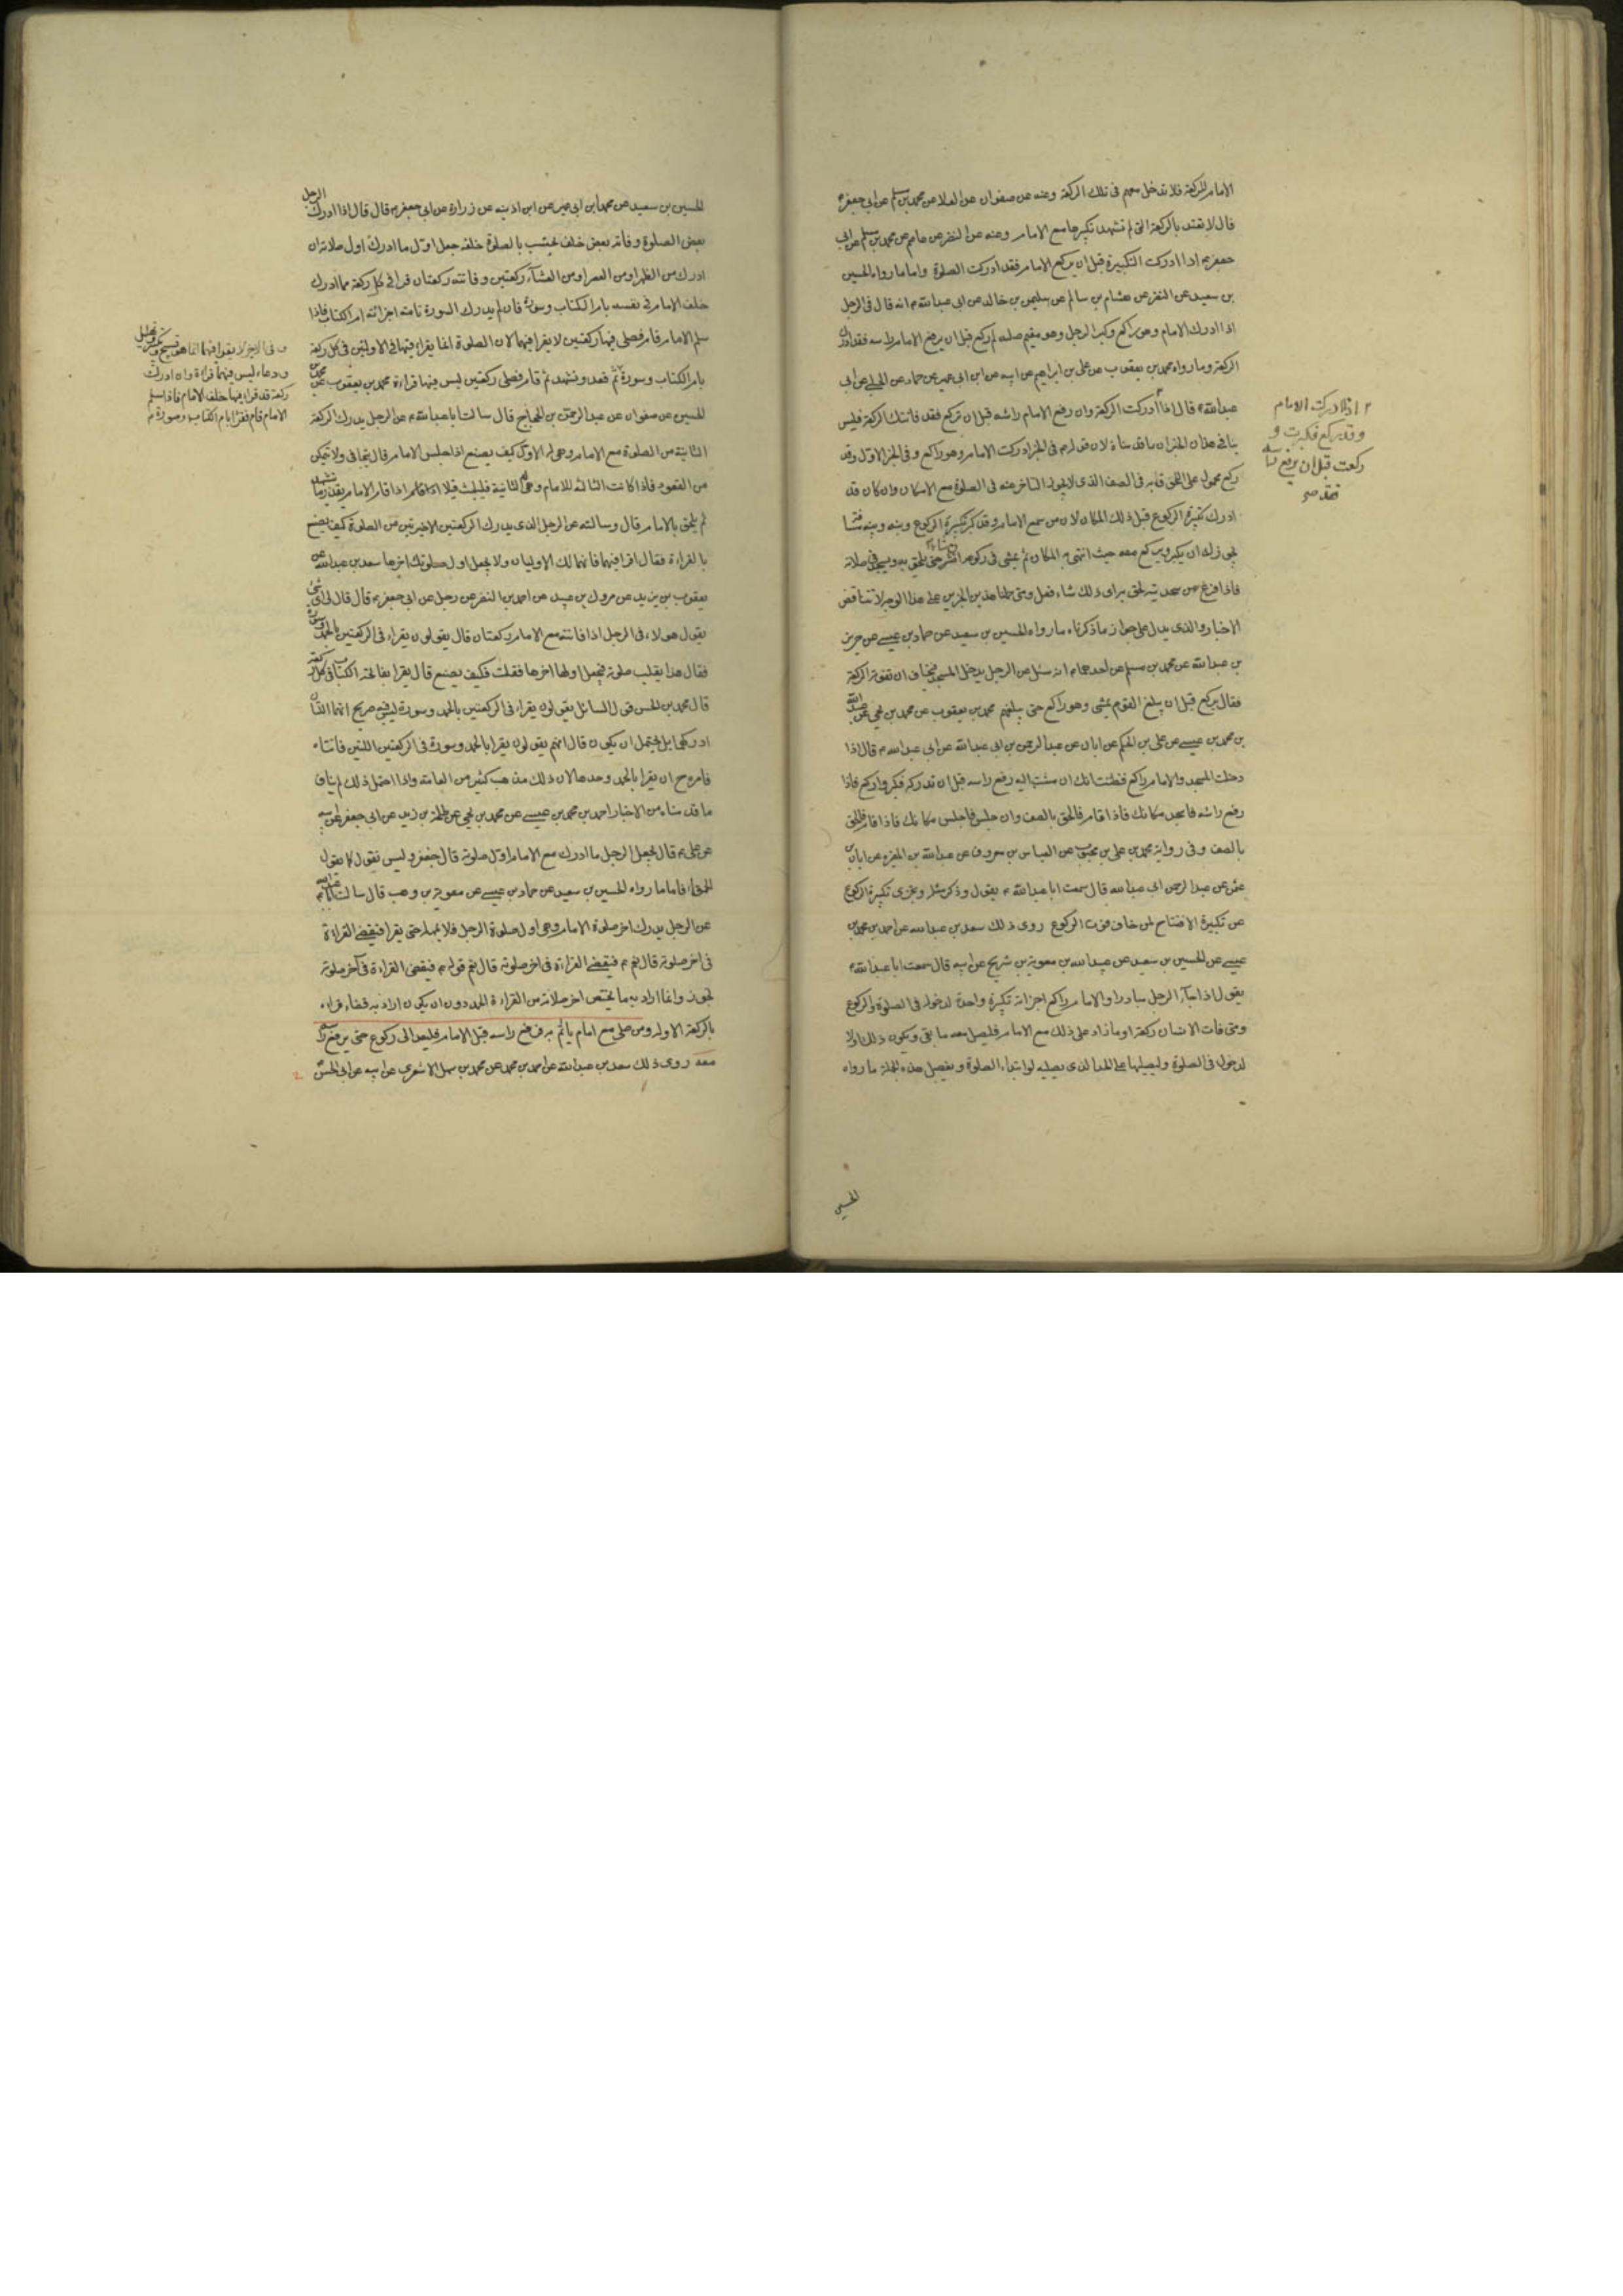 الامام للركعة فلا تدخل معهم فى تلك الركعة وعنه عن صفوان عن العلا عن محمد بن مسلم عن ابى جعفر ع
قال لا تعتد بالركعة التى لم تشهد تكبيرها مع الامام وعنه عن النضر عن عاصم عن محمد بن مسلم عن ابى
جعفر ع اذا ادركت التكبيرة قبل ان يركع الامام فقد ادركت الصلوة واما ما رواه الحسين
بن سعيد عن النضر عن هشام بن سالم عن سليمن بن خالد عن ابى عبدالله ع انه قال فى الرجل
اذا ادرك الامام وهو راكع وكبر الرجل وهو مقيم صلبه ثم ركع قبل ان يرفع الامام راسه فقد ادرك
الركعة وما رواه محمد بن يعقوب عن على بن ابراهيم عن ابيه عن ابن ابى عمير عن حماد عن الحلبى عن ابى
عبدالله ع قال اذا ادركت الركعة وان رفع الامام راسه قبل ان تركع فقد فاتتك الركعة فليس
ينافى هذان الخبران ما قدمناه لان قوله فى الخبر ادركت الامام وهو راكع وفى الخبر الاول وقد
ركع محمول على اللحوق به فى الصف الذى لا يجوز التاخر عنه فى الصلوة مع الامكان وان كان قد
ادرك تكبيرة الركوع قبل ذلك المكان لان من سمع الامام وقد كبر تكبيرة الركوع وبينه وبينه مسافة
يجوز له ان يكبر ويركع معه حيث انتهى به المكان ثم يمشى فى ركوعه ان شاء حتى يلحق به ويسجد فى صلاته
فاذا فرغ من سجدتيه لحق به اى ذلك شاء فعل ومتى حملنا هذين الخبرين على هذا الوجه لا تتناقض
الاخبار والذى يدل على جواز ما ذكرناه ما رواه الحسين بن سعيد عن حماد بن عيسى عن حريز
بن عبدالله عن محمد بن مسلم عن احدهما ع انه سئل عن الرجل يدخل المسجد فيخاف ان تفوته الركعة
فقال يركع قبل ان يبلغ القوم يمشى وهو راكع حتى يبلغهم محمد بن يعقوب عن محمد بن يحيى عن عبدالله
بن محمد بن عيسى عن على بن الحكم عن ابان عن عبدالرحمن بن ابى عبدالله عن ابى عبدالله ع قال اذا
دخلت المسجد والامام راكع فظننت انك ان مشيت اليه رفع راسه قبل ان تدركه فكبر واركع فاذا
رفع راسه فاسجد مكانك فاذا قام فالحق بالصف وان جلس فاجلس مكانك فاذا قام فالحق
بالصف وفى رواية محمد بن على بن محبوب عن العباس بن معروف عن عبدالله بن المغيرة عن ابان بن
عثمن عن عبد الرحمن ابى عبدالله قال سمعت ابا عبدالله ع يقول وذكر مثله ويجزى تكبيرة الركوع
عن تكبيرة الافتتاح لمن خاف فوت الركوع روى ذلك سعد بن عبدالله عن احمد بن محمد بن
عيسى عن الحسين بن سعيد عن عبدالله بن معوية بن شريح عن ابيه قال سمعت ابا عبدالله ع
يقول اذا جآء الرجل مبادرا والامام راكع اجزاته تكبيرة واحدة لدخوله فى الصلوة والركوع
ومتى فات الانسان ركعة او ما زاد على ذلك مع الامام فليصل معه ما بقى ويكون ذلك اولا
لدخوله فى الصلوة وليصليها على الحد الذى يصليه لو ابتداء الصلوة وتفصيل هذه الجملة ما رواه
الحسين
اذا ادركت الامام
وقد ركع فكبرت و
ركعت قبل ان يرفع راسه
فقد صح
الحسين بن سعيد عن محمد بن ابى عمير عن ابن اذينه عن زرارة عن ابى جعفر ع قال قال اذا ادرك الرجل
بعض الصلوة وفاته بعض خلف امام يحتسب بالصلوة خلفه جعل اول ما ادرك اول صلاته ان
ادرك من الظهر او من العصر او من العشآء ركعتين وفاتته ركعتان قرا فى كل ركعة مما ادرك
خلف الامام فى نفسه بام الكتاب وسورة فان لم يدرك السورة تامة اجزائته ام الكتاب فاذا
سلم الامام قام فصلى فيها ركعتين لا يقرا فيهما لان الصلوة انما يقراء فيها فى الاولتين فى كل ركعة
بام الكتاب وسورة ثم قعد وتشهد ثم قام فصلى ركعتين ليس فيهما قراءة محمد بن يعقوب عن محمد بن
الحسين عن صفوان عن عبدالرحمن بن الحجاج قال سالت ابا عبدالله ع عن الرجل يدرك الركعة
الثانية من الصلوة مع الامام وهى له الاولى كيف يصنع اذا جلس الامام قال يتجافى ولا يتمكن
من القعود فاذا كانت الثالثة للامام وهى له الثانية فليلبث قليلا اذا قام الامام بقدر ما تشهد
ثم يلحق بالامام قال وسالته عن الرجل الذى يدرك الركعتين الاخيرتين من الصلوة كيف يصنع
بالقراءة فقال اقرا فيهما فانهما لك الاوليان ولا تجعل اول صلوتك اخرها سعد بن عبدالله عن
يعقوب بن يزيد عن مروك بن عبيد عن احمد بن النضر عن رجل عن ابى جعفر ع قال قال لى اى شئ
يقول هولاء فى الرجل اذا فاتته مع الامام ركعتان قال يقولون يقراء فى الركعتين بالحمد وسورة
فقال هذا يقلب صلوته فيجعل اولها اخرها فقلت فكيف يصنع قال يقرا بفاتحة الكتاب فى كل ركعة
قال محمد بن الحسن قول السائل يقولون يقراء فى الركعتين بالحمد وسورة ليس فيه صريح انهما اللتان
ادركهما بل يحتمل ان يكون قال انهم يقولون يقرا بالحمد وسورة فى الركعتين اللتين فاتتاه
فامره ع ان يقرا بالحمد وحدها لان ذلك مذهب كثير من العامة واذا احتمل ذلك لم يناف
ما قدمناه من الاخبار احمد بن محمد بن عيسى عن محمد بن يحيى عن طلحة بن زيد عن ابى جعفر عن ابيه
عن على ع قال يجعل الرجل ما ادرك مع الامام اول صلوته قال جعفر وليس نقول كما يقول
الحمقاء فاما ما رواه الحسين بن سعيد عن حماد بن عيسى عن معوية بن وهب قال سالت ابا عبدالله ع
عن الرجل يدرك اخر صلوة الامام وهى اول صلوة الرجل فلا يمهله حتى يقرا فيقضى القراءة
فى اخر صلوته قال نعم فيقضى القراءة فى اخر صلوته قال نعم قوله ع فيقضى القراءة فى آخر صلوته
تجوز وانما اراد به ما يختص اخر صلاته من القراءة الحمد دون ان يكون اراد به قضاء قراءة
بالركعة الاولة ومن صلى مع امام ياتم به فرفع راسه قبل الامام فليعد الى ركوع حتى يرفع راسه
معه روى ذلك سعد بن عبدالله عن احمد بن محمد عن محمد بن سهل الاشعرى عن ابيه عن ابى الحسن
وفى الاخر لا يقرا فيهما انما هو تسبيح وتكبير وتهليل
ودعاء ليس فيهما قراءة وان ادرك
ركعة قد قرا فيها خلف الامام فاذا سلم
الامام قام فقرا بام الكتاب وسورة